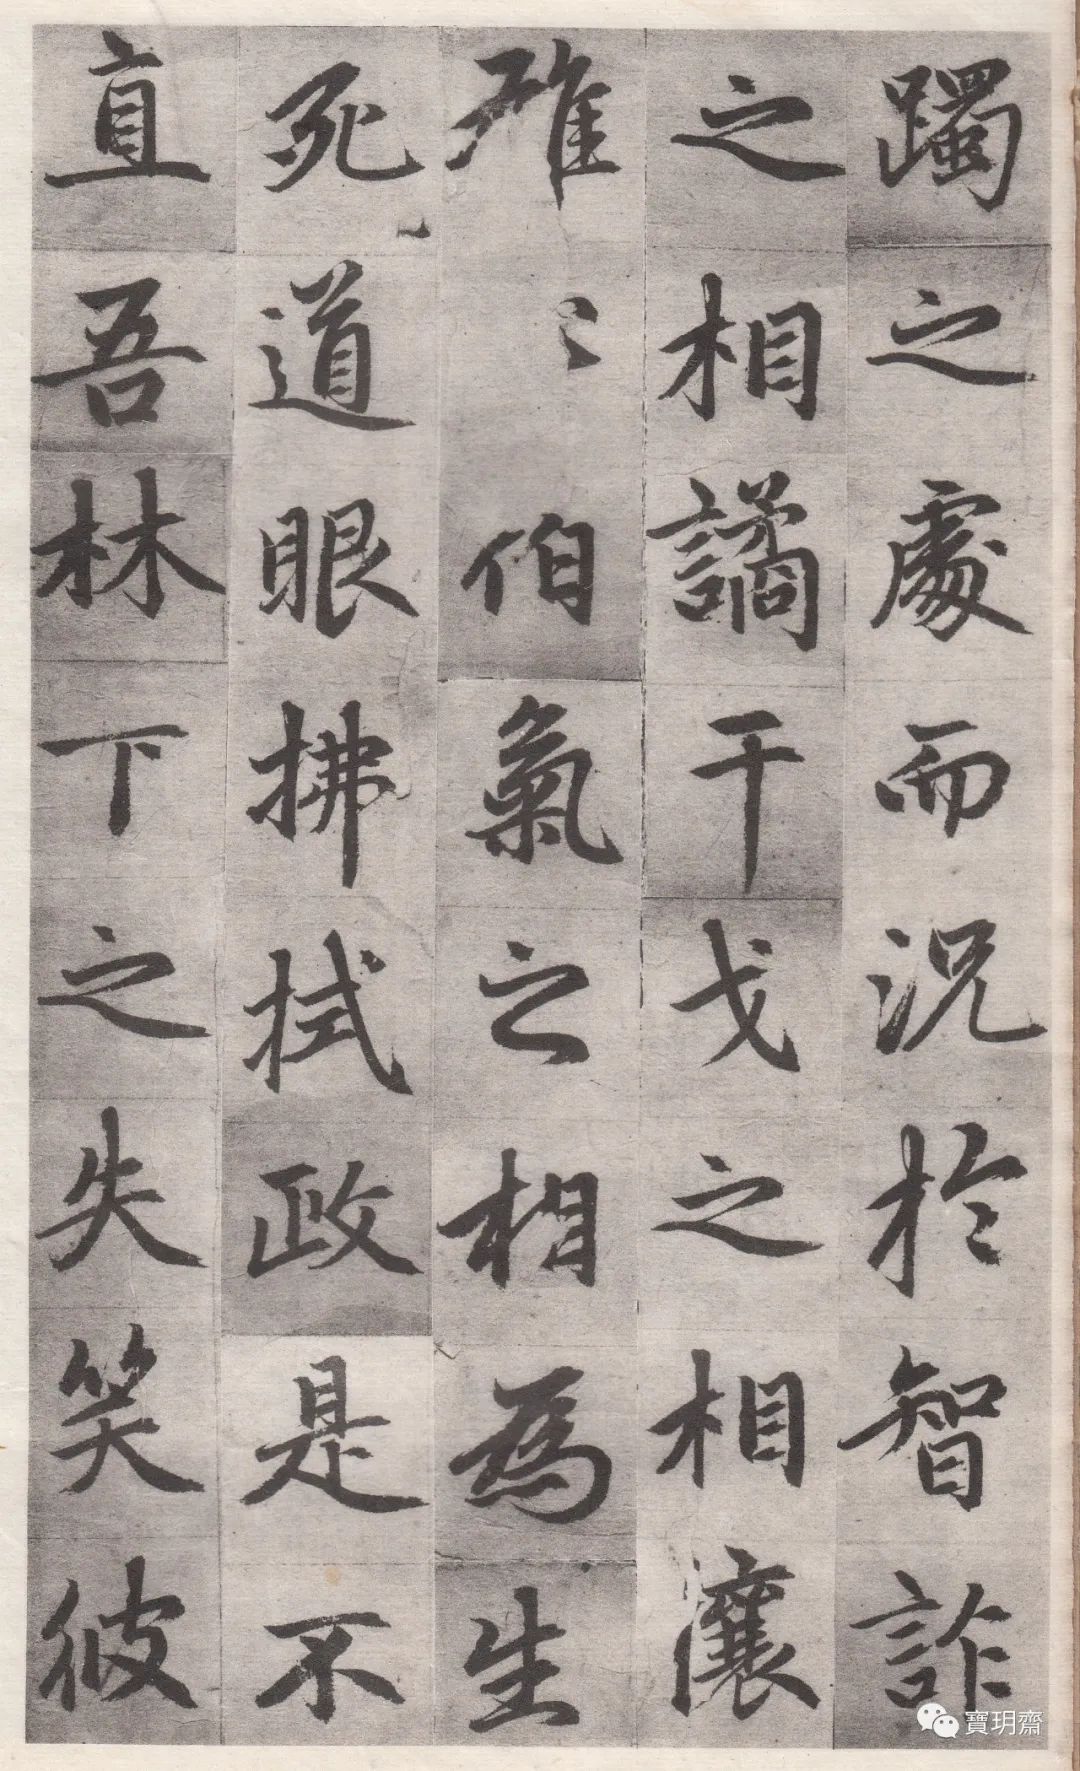 躅之處而況於智詐
之相譎干戈之相瀼
〻伯氣之相為生
死道眼拂拭政是不
直吾林下之失笑彼
寶玥齋